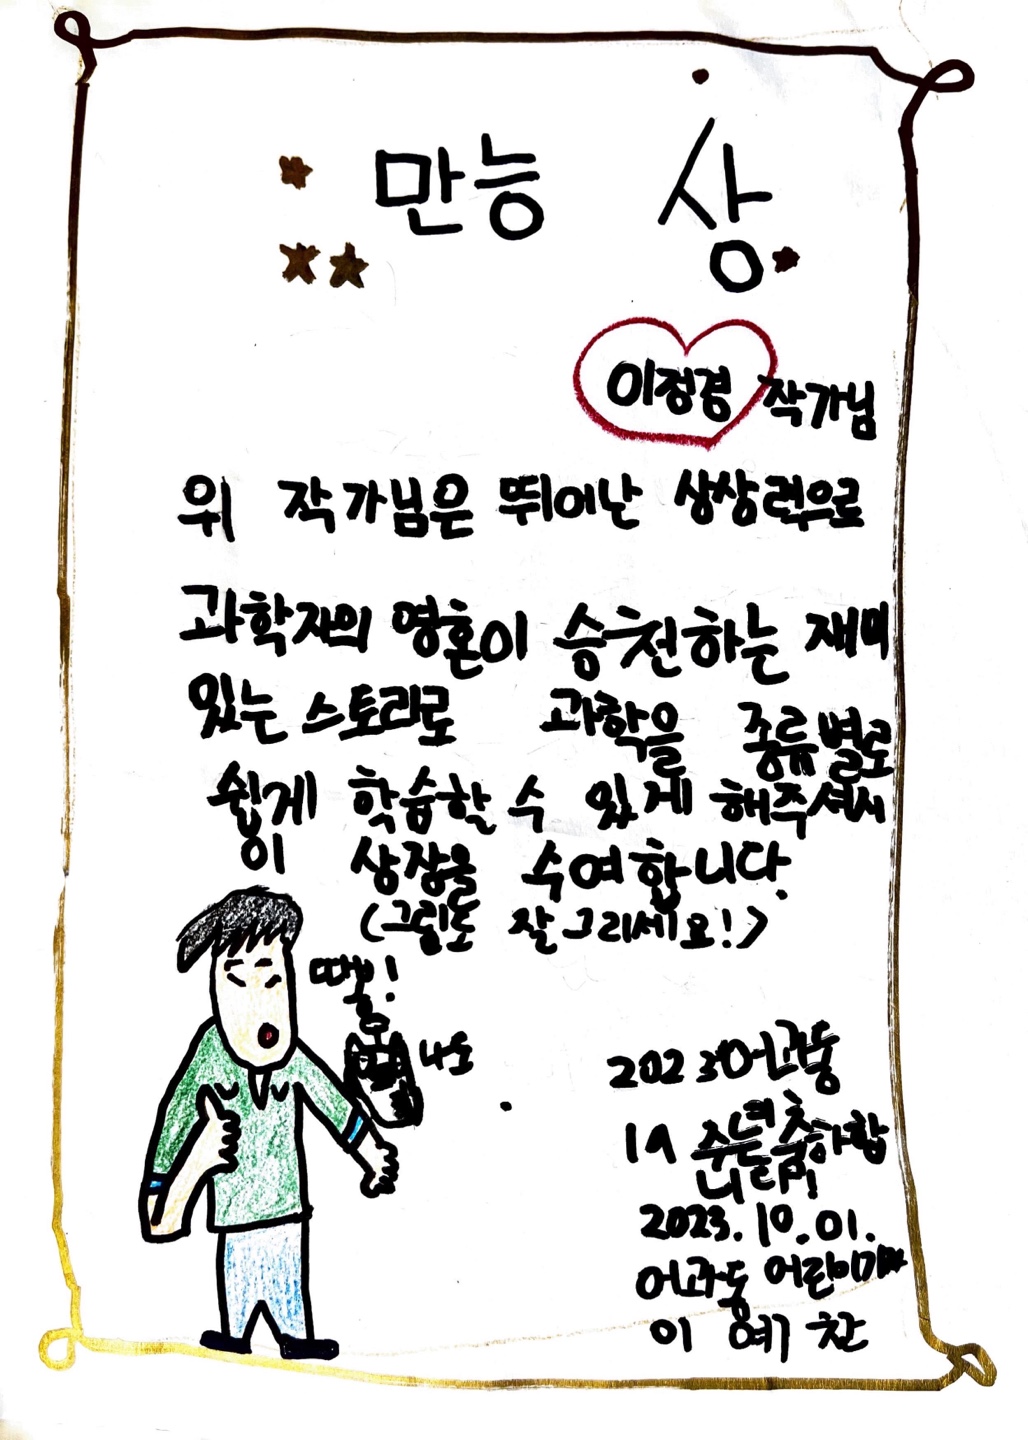 만능 상
이정경 작가님
위 작가님은 뛰어난 상상력으로
과학자의 영혼이 승천하는 재미
있는 스토리로 과학을 종류별로
쉽게 학습할 수 있게 해주셔서
이 상장을 수여합니다.
(그림도 잘 그리세요!)
따봉!
나도
2023 어과동
19 주년을 축하합
니다!
2023.10.01.
어과동 어린이기자
이 예 찬